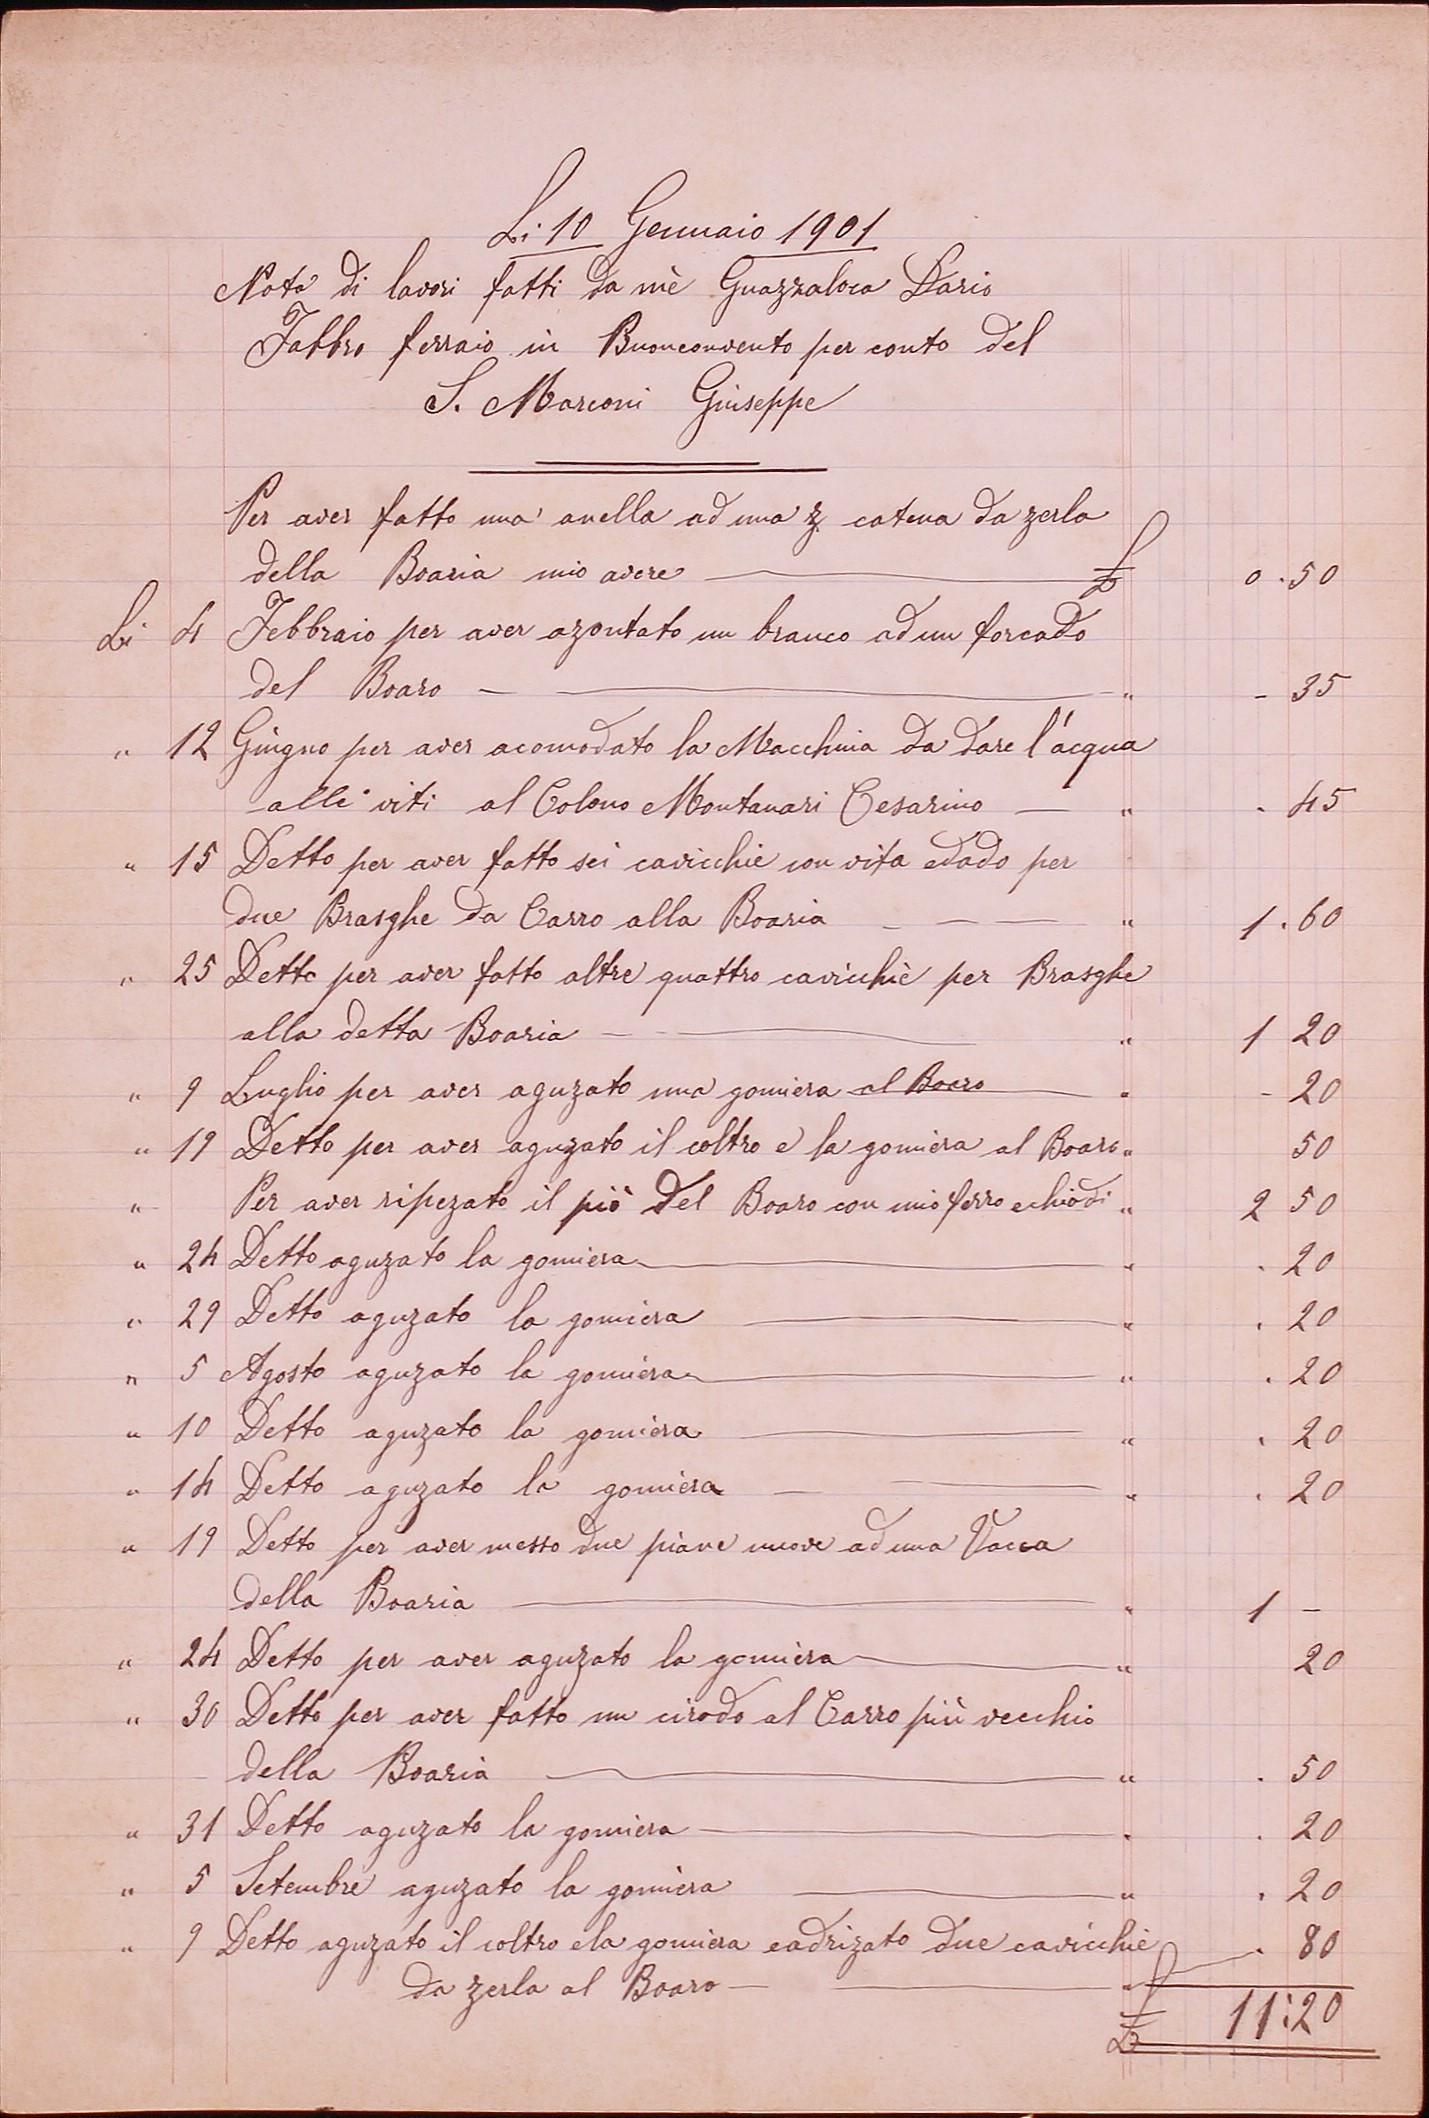 Li 10 Gennaio 1901
Nota di lavori fatti da mè Guazzaloca Dario
Fabbro ferraio in Buonconvento per conto del
S. Marconi Giuseppe
Per aver fatto una anella ad una z. catena da zerla
della Boaria mio avere £ 0.50
Li 4 Febbraio per aver azontato un branco ad un forcado
del Boaro " - 35
" 12 Giugno per aver acomodato la Macchina da dare l'acqua
alle viti al Colono Montanari Cesarino " . 45
" 15 Detto per aver fatto sei cavicchie con vita edado per
due Brasghe da Carro alla Boaria " 1.60
" 25 Detto per aver fatto altre quattro cavicchie per Brasghe
alla detta Boaria " 1 20
" 9 Luglio per aver aguzato una gomiera al Boaro " - 20
" 19 Detto per aver aguzato il coltro e la gomiera al Boaro " 50
" Per aver ripezato il piò del Boaro con mio ferro e chiodi " 2 50
" 24 Detto aguzato la gomiera " . 20
" 29 Detto aguzato la gomiera " . 20
" 5 Agosto aguzato la gomiera " . 20
" 10 Detto aguzato la gomiera " . 20
" 14 Detto aguzato la gomiera " . 20
" 19 Detto per aver messo due piane nuove ad una Vacca
della Boaria " 1 -
" 24 Detto per aver aguzato la gomiera " 20
" 30 Detto per aver fatto un cirodo al Carro più vecchio
della Boaria " . 50
" 31 Detto aguzato la gomiera " . 20
" 5 Setembre aguzato la gomiera " . 20
" 9 Detto aguzato il coltro ela gomiera eadrizato due cavicchie . 80
da zerla al Boaro "
£ 11:20